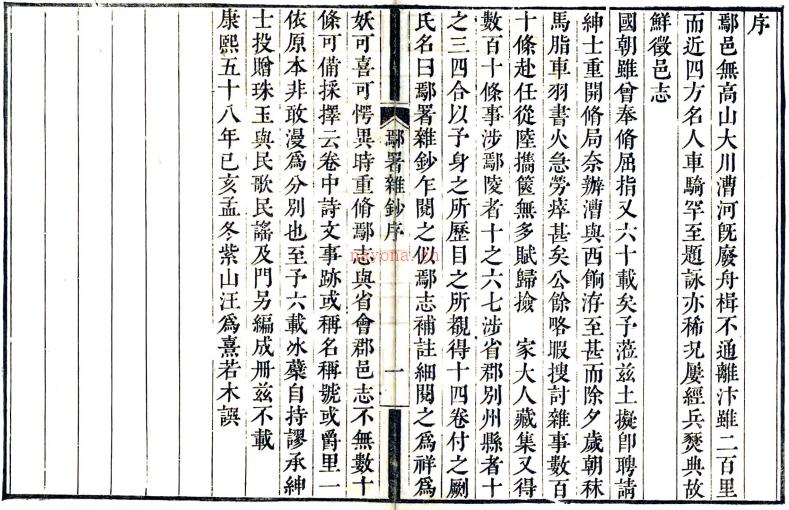 序
鄢邑無高山大川漕河旣廢舟楫不通離汴雖二百里
而近四方名人車騎罕至題詠亦稀況屢經兵燹典故
鮮徵邑志
國朝雖曾奉脩屈指又六十載矣予蒞兹土擬卽聘請
紳士重開脩局奈辦漕與西餉洊至甚而除夕歲朝秣
馬脂車羽書火急勞瘁甚矣公餘略暇搜討雜事數百
十條赴任從陸攜篋無多賦歸撿　家大人藏集又得
數百十條事涉鄢陵者十之六七涉省郡別州縣者十
之三四合以予身之所歷目之所覩得十四卷付之劂
氏名曰鄢署雜鈔乍閱之似鄢志補註細閱之爲祥爲
鄢署雜鈔序
一
妖可喜可愕異時重脩鄢志與省會郡邑志不無數十
條可備採擇云卷中詩文事跡或稱名稱號或爵里一
依原本非敢漫爲分別也至予六載冰蘗自持謬承紳
士投贈珠玉與民歌民謠及門另編成冊兹不載
康熙五十八年己亥孟冬紫山汪爲熹若木譔